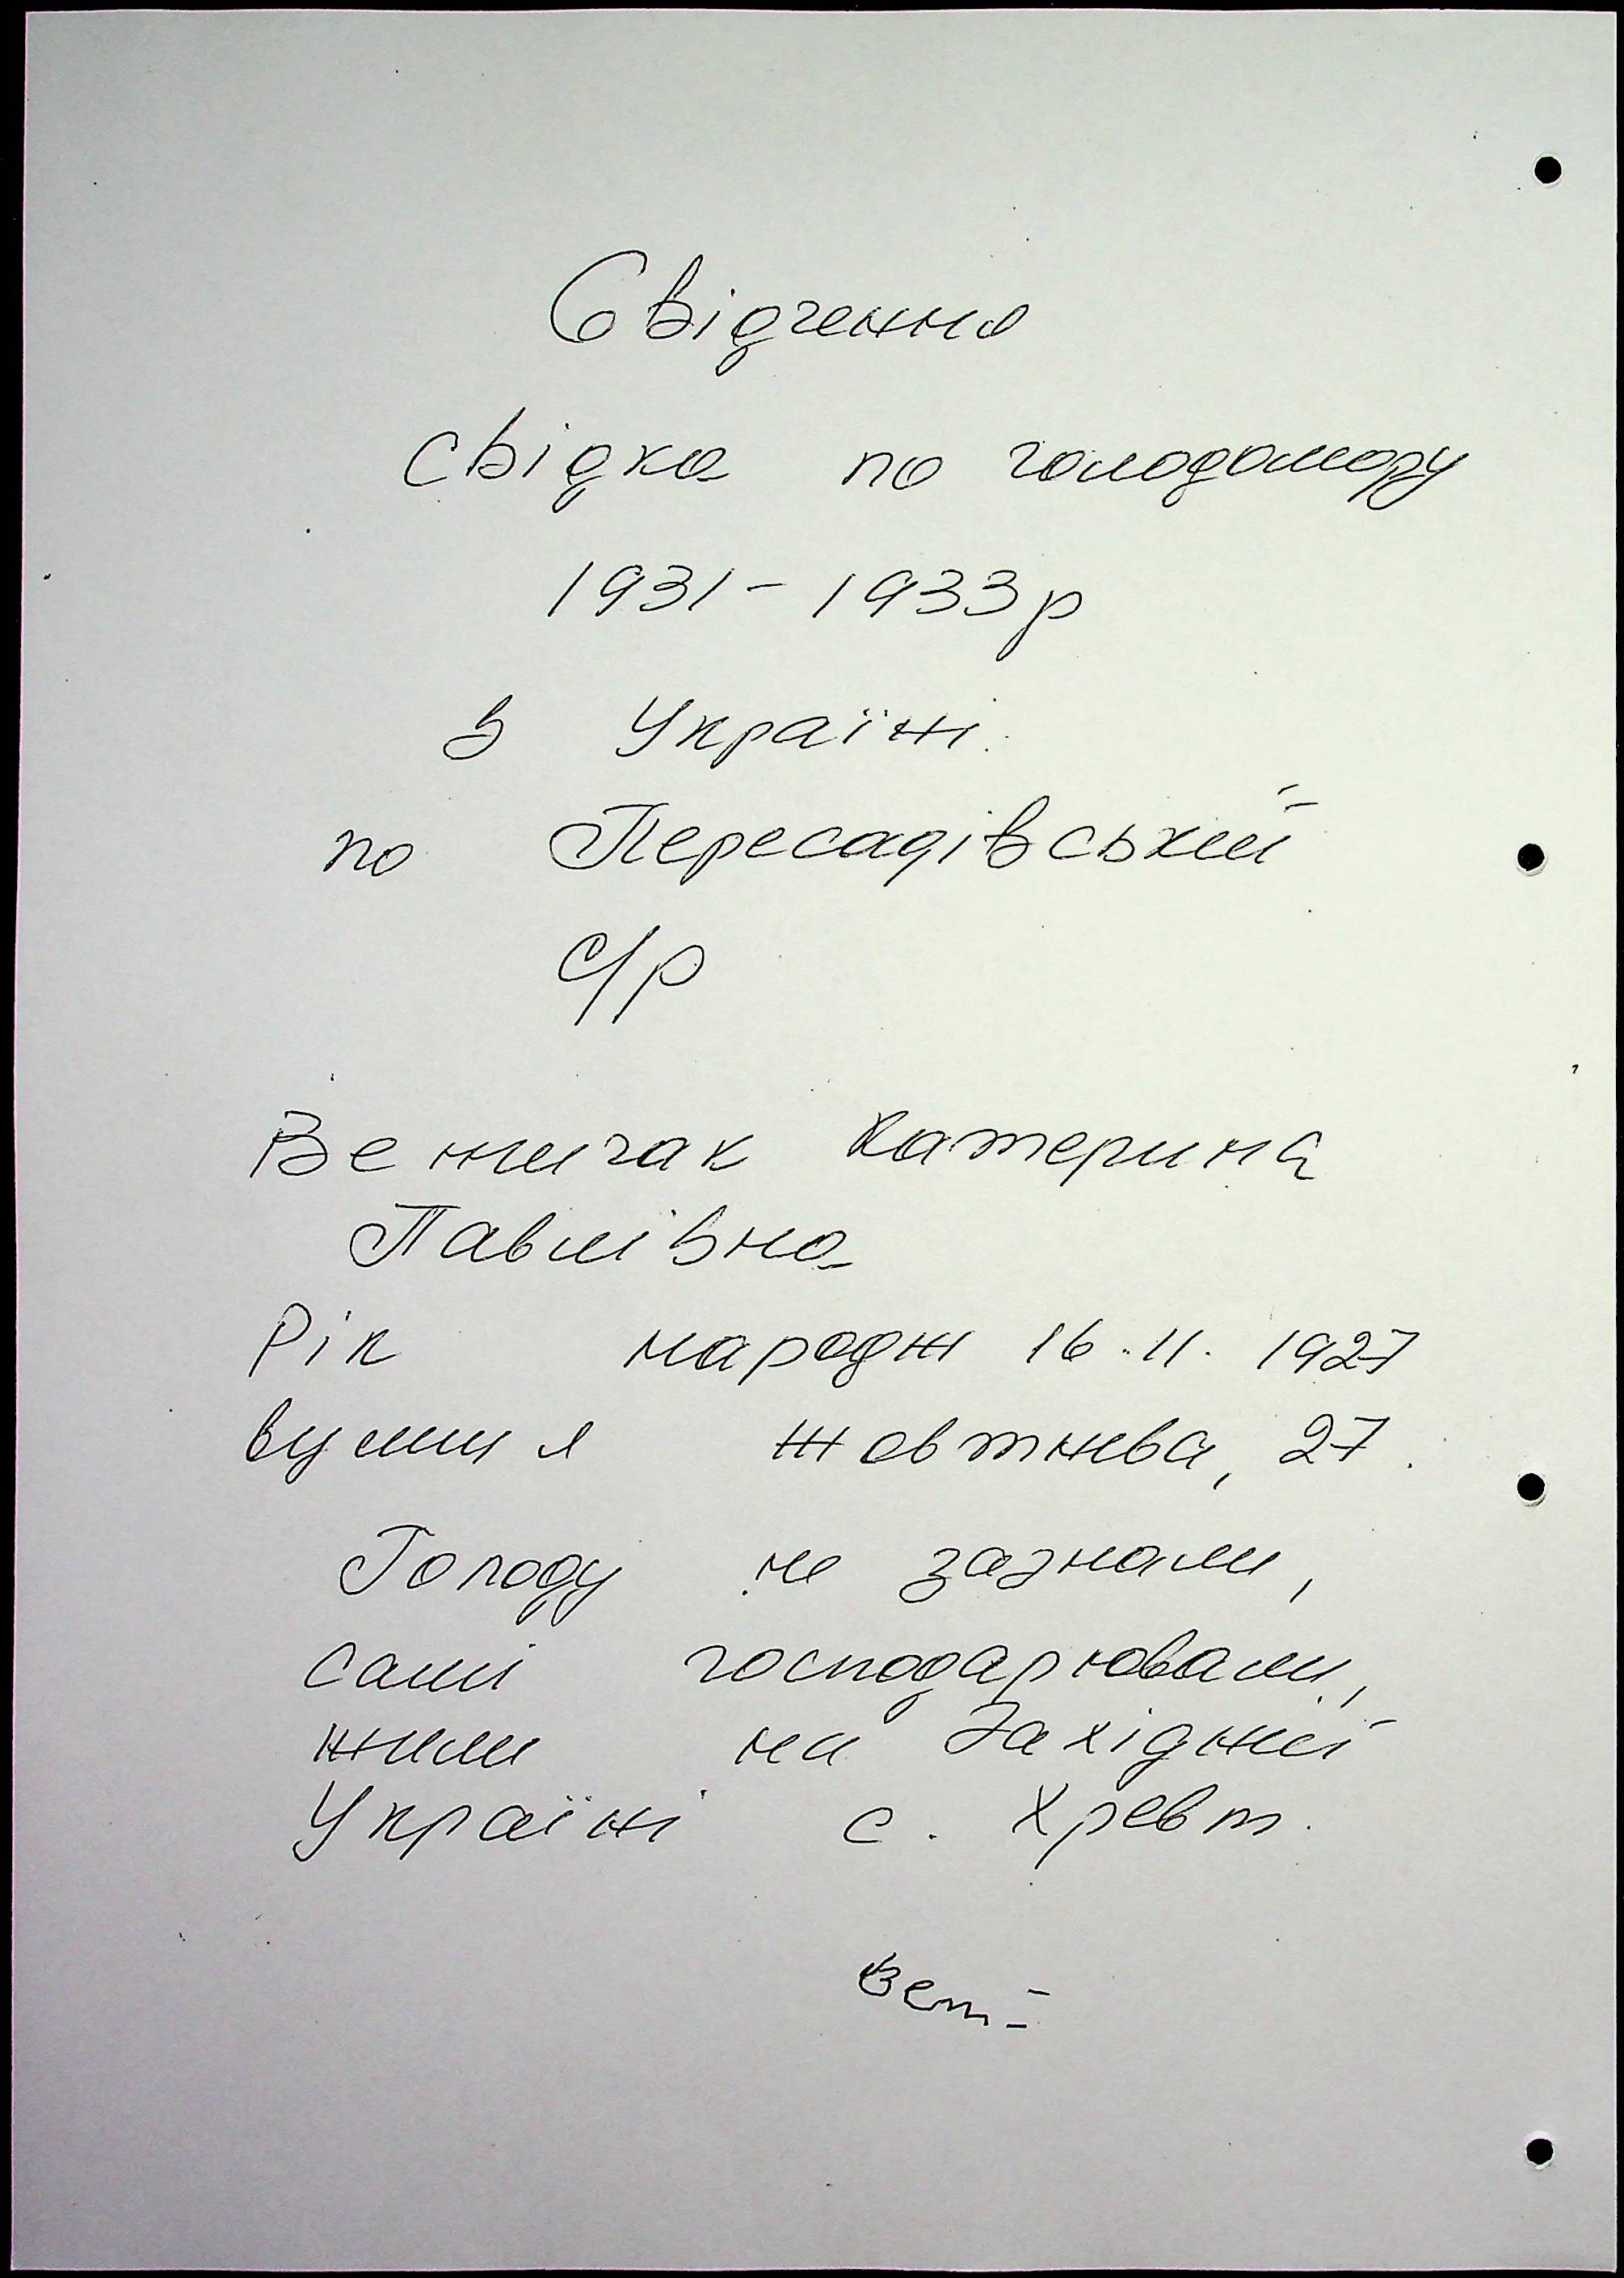 Свідчення
свідка по голодомору
1931-1933р
в Україні.
по Пересадівській
с/р
Катерина
Павлівна
Рік народж 16.11.1927
вулиця Жовтнева, 27.
Голоду не зазнали,
самі господарювали,
жили на Західній
Україні с. Хревт.